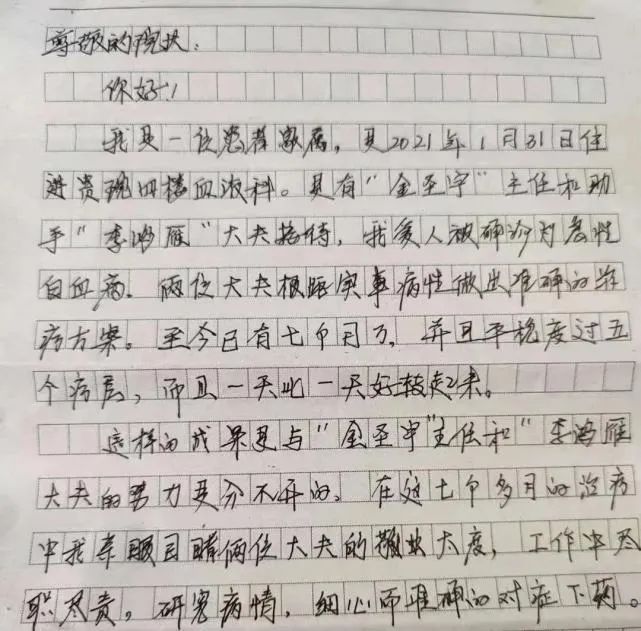 尊敬的院长：
你好！
我是一位患者家属，是2021年1月31日住
进贵院四楼血液科。是有“金圣宇”主任和助
手“李鸿雁”大夫接待，我爱人被确诊为急性
白血病。两位大夫根据实事病性做出准确的治
疗方案。至今已有七个月了，并且平稳度过五
个疗层，而且一天比一天好转起来。
这样的成果是与“金圣宇”主任和“李鸿雁
大夫的努力是分不开的。在这七个多月的治病
中我亲眼目睹俩位大夫的敬业太度，工作中尽
职尽责。研究病情，细心而准确的对症下药。